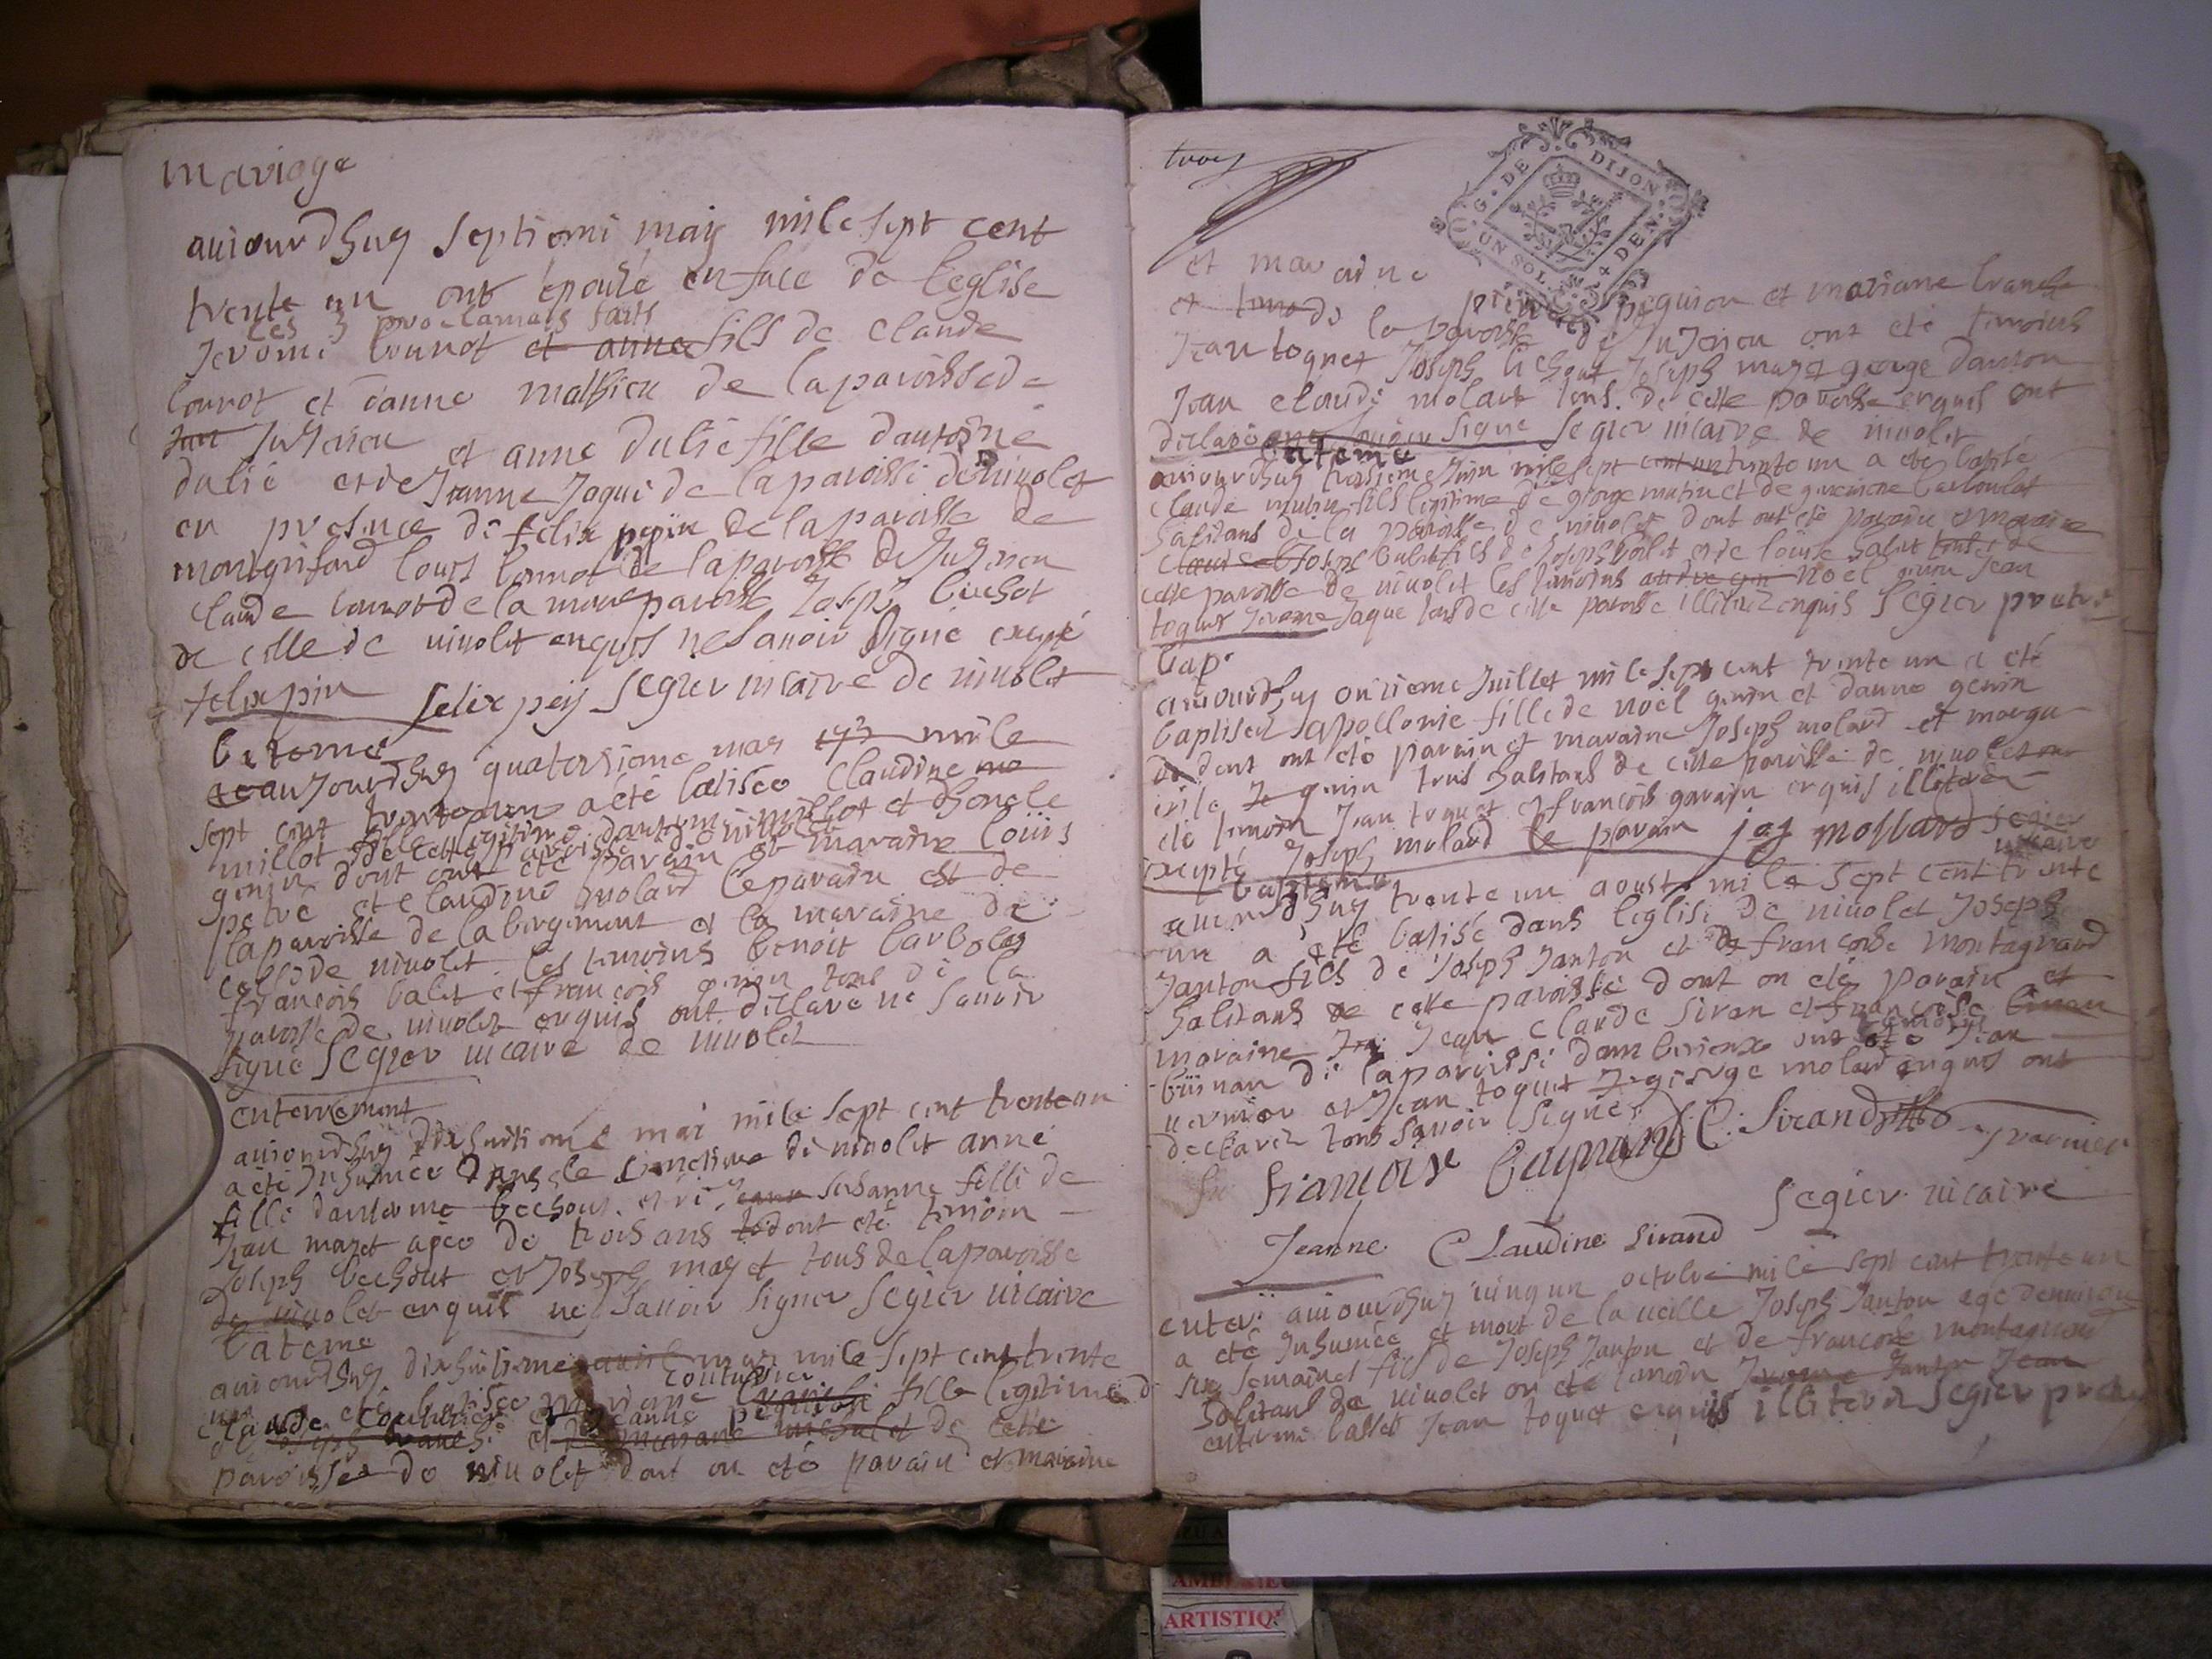 mariage
auiourdhuy septiemi may mile sept cent
trente un ont épousé en face de leglise
les 3 proclamats faits
Jeromi bonnot et anne fils de claude
bonnot et danne mathieu de la paroisse de
Jujurieu et anne dulié fille dantoine
dulié et de Jeanne Jaqui de la paroisse de niuolet
en presence de felix pepin de la paroisse de
montgrifond louis bonnot de la paroisse de Jujurieu
claude bonnot de la meme paroisse Joseph bichot
de celle de niuolet enquis ne sauoir signé excepté
felix pin felix pey Segier uicaire de niuolet
bateme
auJourdhuy quatorsieme mai mile
sept cent trente un a eté batisée claudine
millot fille legitime dantoine millot et
de cette paroisse de niuolet
genin dont ont eté parain et maraine loüis
petre et claudine molard le parain est de
la paroisse de labergement et la maraine de
celle de niuolet les temoins benoit barbolat
françois balet et françois genin tous de la
paroisse de niuolet enquis ont declaré ne sauoir
signé Segier uicaire de niuolet
enterrement
auiourdhuy dixhuitieme mai mile sept cent trente un
a eté Inhumée dans le cimetiere de niuolet anne
fille dantoine bechout et de susanne fille de
Jean mazet agée de trois ans dont eté temoin
Joseph bechout et Joseph mazet tous de la paroisse
de niuolet enquis ne sauoir signer Segier uicaire
bateme
auiourdhuy dixhuitieme mai mile sept cent trente
couturier
un a eté batisée mariane fille legitime d
claude couturier et Jeanne pequion
de cette
paroisse de niuolet dont on eté parain et maraine
troy
G. DE DIJON
UN SOL 4 DEN.
et maraine
pequion et mariane branche
de la paroisse de Jujurieu ont eté temoins
Jean toquet Joseph bichout Joseph mazet george danton
Jean claude molart tous de cette paroisse enquis ont
declaré signé Segier uicaire de niuolet
bateme
auiourdhuy troisieme Juin mile sept cent trente un a eté batisé
claude mutin fils legitime de george mutin et de barboulat
habitans de la paroisse de niuolet dont ont eté parain et maraine
Joseph balet fils de Joseph balet et de loüise balet tous de
cette paroisse de niuolet les temoins noel genin Jean
toquet Jerome Jaque tous de cette paroisse illiterez enquis Segier pretre
bap
auiourdhuy onzieme Juillet mile sept cent trente un a eté
baptisez apollonie fille de noel genin et danne genin
dont ont eté parain et maraine Joseph molard et margu
erite genin tous habitans de cette paroisse de niuolet ont
eté temoin Jean toquet et francois garain enquis illiterez
excepté Joseph molard le parain jos mollard Segier
uicaire
baptéme
auiourdhuy trente un aoust mile sept cent trente
un a eté batisé dans leglise de niuolet Joseph
Janton fils de Joseph Janton et de francoise montagnard
habitans de cette paroisse dont on eté parain et
maraine Jean claude siran et francoise
buinan de la paroisse damberieux ont eté temoins Jean
uernier et Jean toquet george molard enquis ont
declarez tous sauoir signer
françoise buynand J. C. Sirand uernier
Segier uicaire
Jeanne Claudine Sirand
enter: auiourdhuy uingun octobre mile sept cent trente un
a eté Inhumée et mort de la ueille Joseph Janton agé denuiron
six semaines fils de Joseph Janton et de francoise montagnard
habitans de niuolet on eté temoin Jerome Janton Jean
balset Jean toquet enquis illiterez Segier pretre
ARTISTIQ